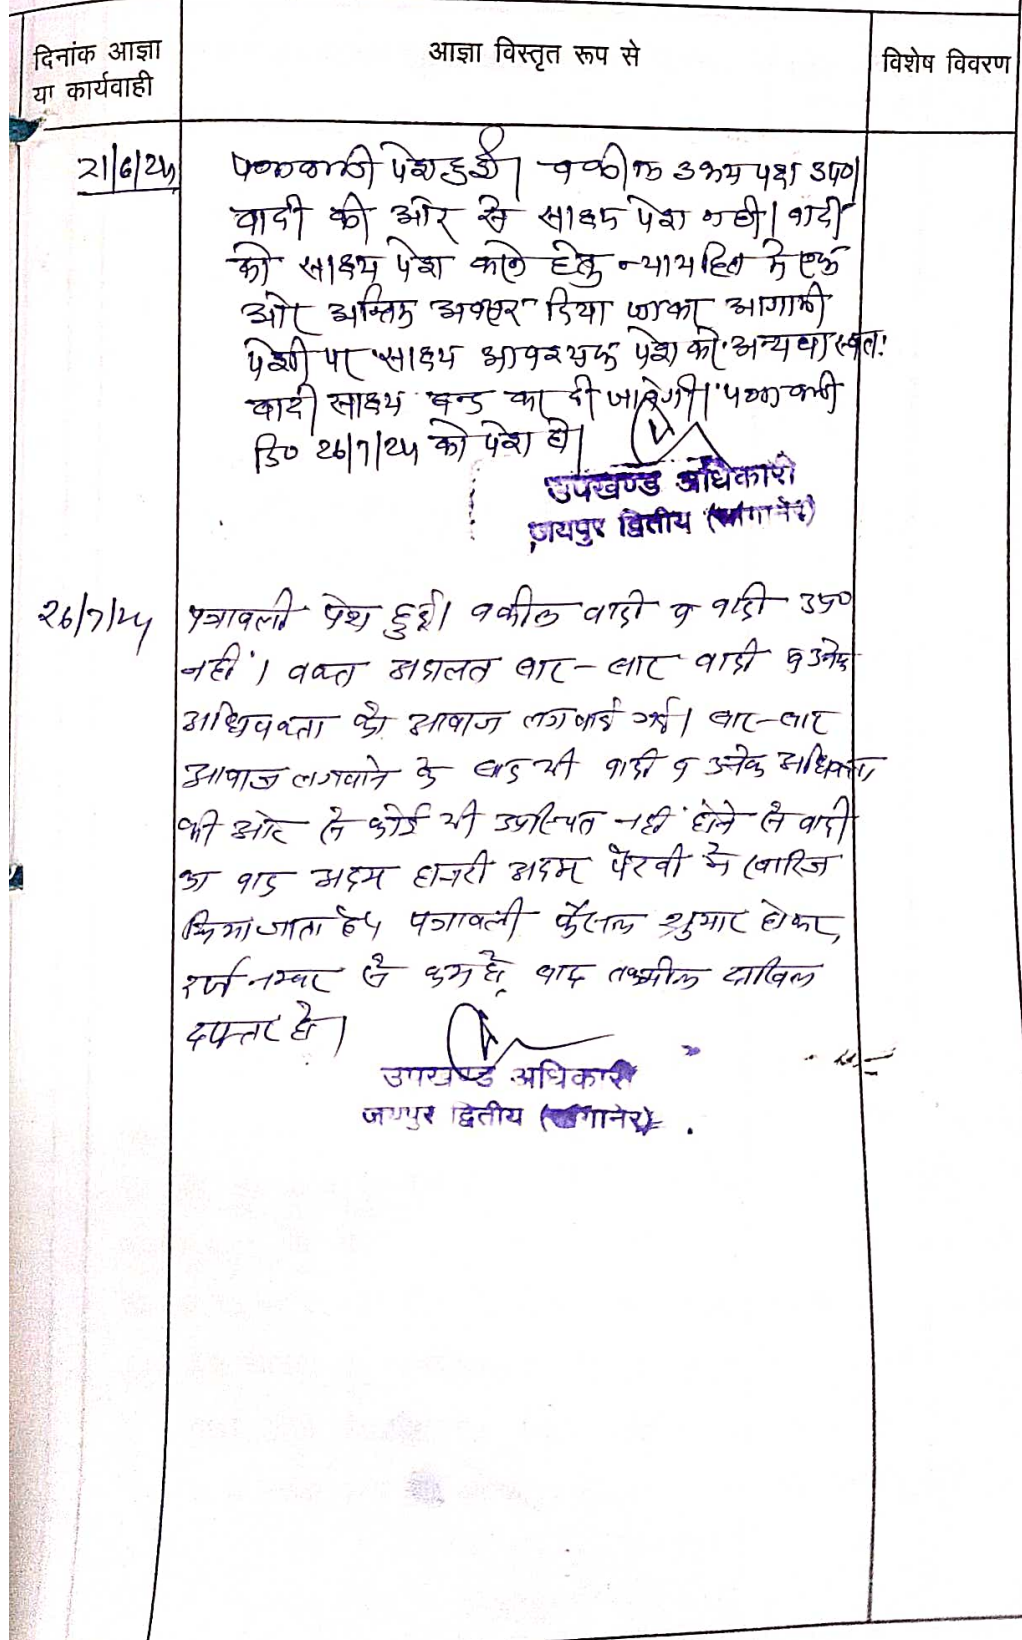 दिनांक आज्ञा
या कार्यवाही
आज्ञा विस्तृत रूप से
विशेष विवरण
21/6/24
पत्रावली पेश हुई। वकील उभय पक्ष उप०
वादी की ओर से साक्ष्य पेश नहीं। वादी
को साक्ष्य पेश करने हेतु न्यायहित मे एक
ओर अन्तिम अवसर दिया जाकर आगामी
पेशी पर साक्ष्य आवश्यक पेश करे अन्यथा स्वतः
वादी साक्ष्य बन्द कर दी जावेगी। पत्रावली
दि० 26/7/24 को पेश हो।
उपखण्ड अधिकारी
जयपुर द्वितीय (सांगानेर)
26/7/24
पत्रावली पेश हुई। वकील वादी व वादी उप०
नहीं। वक्त अदालत बार-बार वादी व उनके
अधिवक्ता को आवाज लगवाई गई। बार-बार
आवाज लगवाने के बाद भी वादी व उनके अधिवक्ता
की ओर से कोई भी उपस्थित नहीं होने से वादी
का वाद अदम हाजरी अदम पैरवी मे खारिज
किया जाता है। पत्रावली फैसल शुमार होकर,
दर्ज नम्बर से कम हो, बाद तकमील दाखिल
दफ्तर हो।
उपखण्ड अधिकारी
जयपुर द्वितीय (सांगानेर)